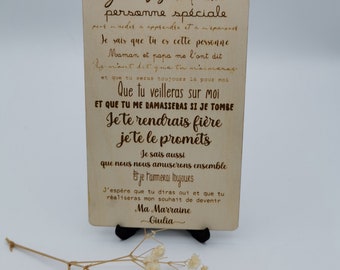 personne spéciale
Je sais que tu es cette personne
Maman et papa me l'ont dit
et que tu seras toujours là pour moi
Que tu veilleras sur moi
ET QUE TU ME RAMASSERAS SI JE TOMBE
Je te rendrais fière
je te le promets
Je sais aussi
que nous nous amuserons ensemble
Et je t'aimerai toujours
J'espère que tu diras oui et que tu
réaliseras mon souhait de devenir
Ma Marraine
Giulia